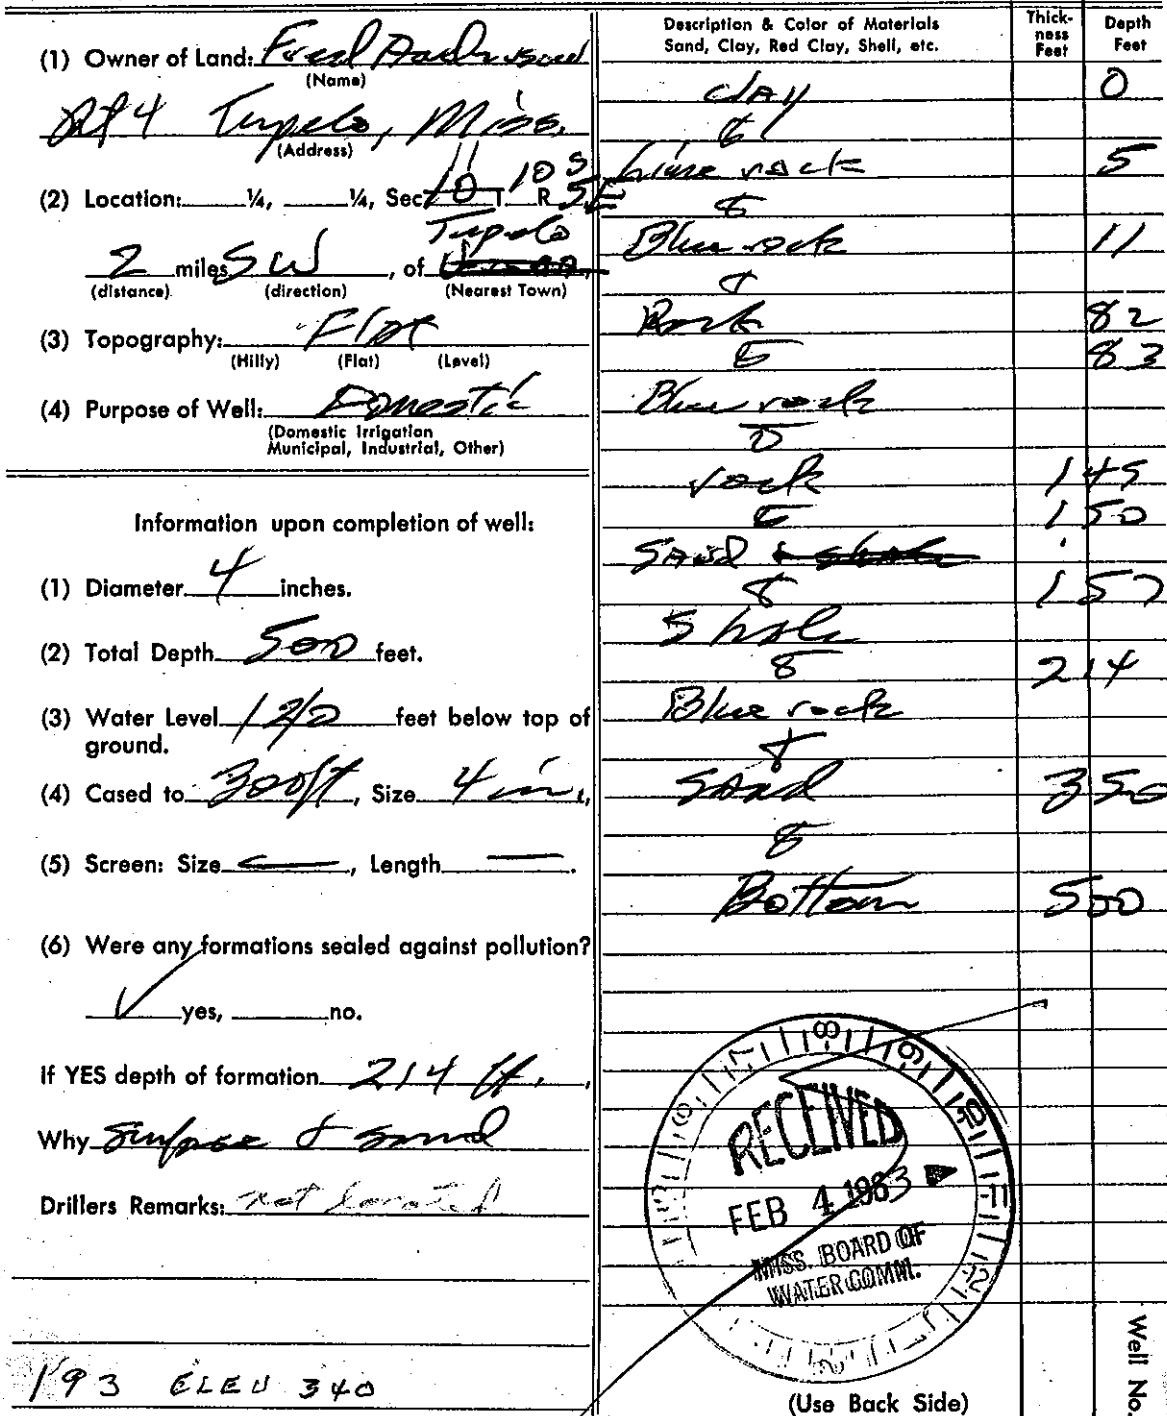 (1) Owner of Land: Fred
(Name)
Rt 4 Tupelo, Miss.
(Address)
(2) Location: ¼, ¼, Sec 11 T 10 S R 5E
2 miles SW, of Tupelo
(distance) (direction) (Nearest Town)
(3) Topography: Flat
(Hilly) (Flat) (Level)
(4) Purpose of Well: Domestic
(Domestic Irrigation
Municipal, Industrial, Other)
Information upon completion of well:
(1) Diameter 4 inches.
(2) Total Depth 500 feet.
(3) Water Level 120 feet below top of
ground.
(4) Cased to 300 ft, Size 4 in,
(5) Screen: Size —, Length —.
(6) Were any formations sealed against pollution?
✓ yes, no.
If YES depth of formation 214 ft.,
Why Surface & sand
Drillers Remarks: not located
193 ELEV 340
Description & Color of Materials
Sand, Clay, Red Clay, Shell, etc.
Thick-
ness
Feet
Depth
Feet
clay 0
Lime rock 5
Blue rock 11
Rock 82
83
Blue rock
rock 145
150
Sand
157
Shale
214
Blue rock
Sand 350
Bottom 500
RECEIVED
FEB 4 1963
MISS. BOARD OF
WATER COMM.
Well No.
(Use Back Side)